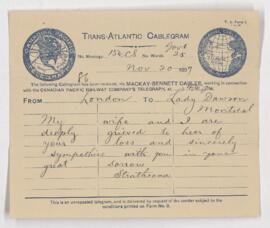 TRANS-ATLANTIC CABLEGRAM
No. Message, No. Words, 25
Nov. 20 1897
The following Cablegram has been received, via MACKAY-BENNETT CABLES, working in connection
with the CANADIAN PACIFIC RAILWAY COMPANY'S TELEGRAPH, at
FROM London TO Lady Dawson
Montreal
My wife and I are
deeply grieved to hear of
your loss and sincerely
sympathise with you in your
great sorrow
Strathcona
This is an unrepeated telegram, and is delivered by request of the sender subject to the
conditions printed on Form No. 2.